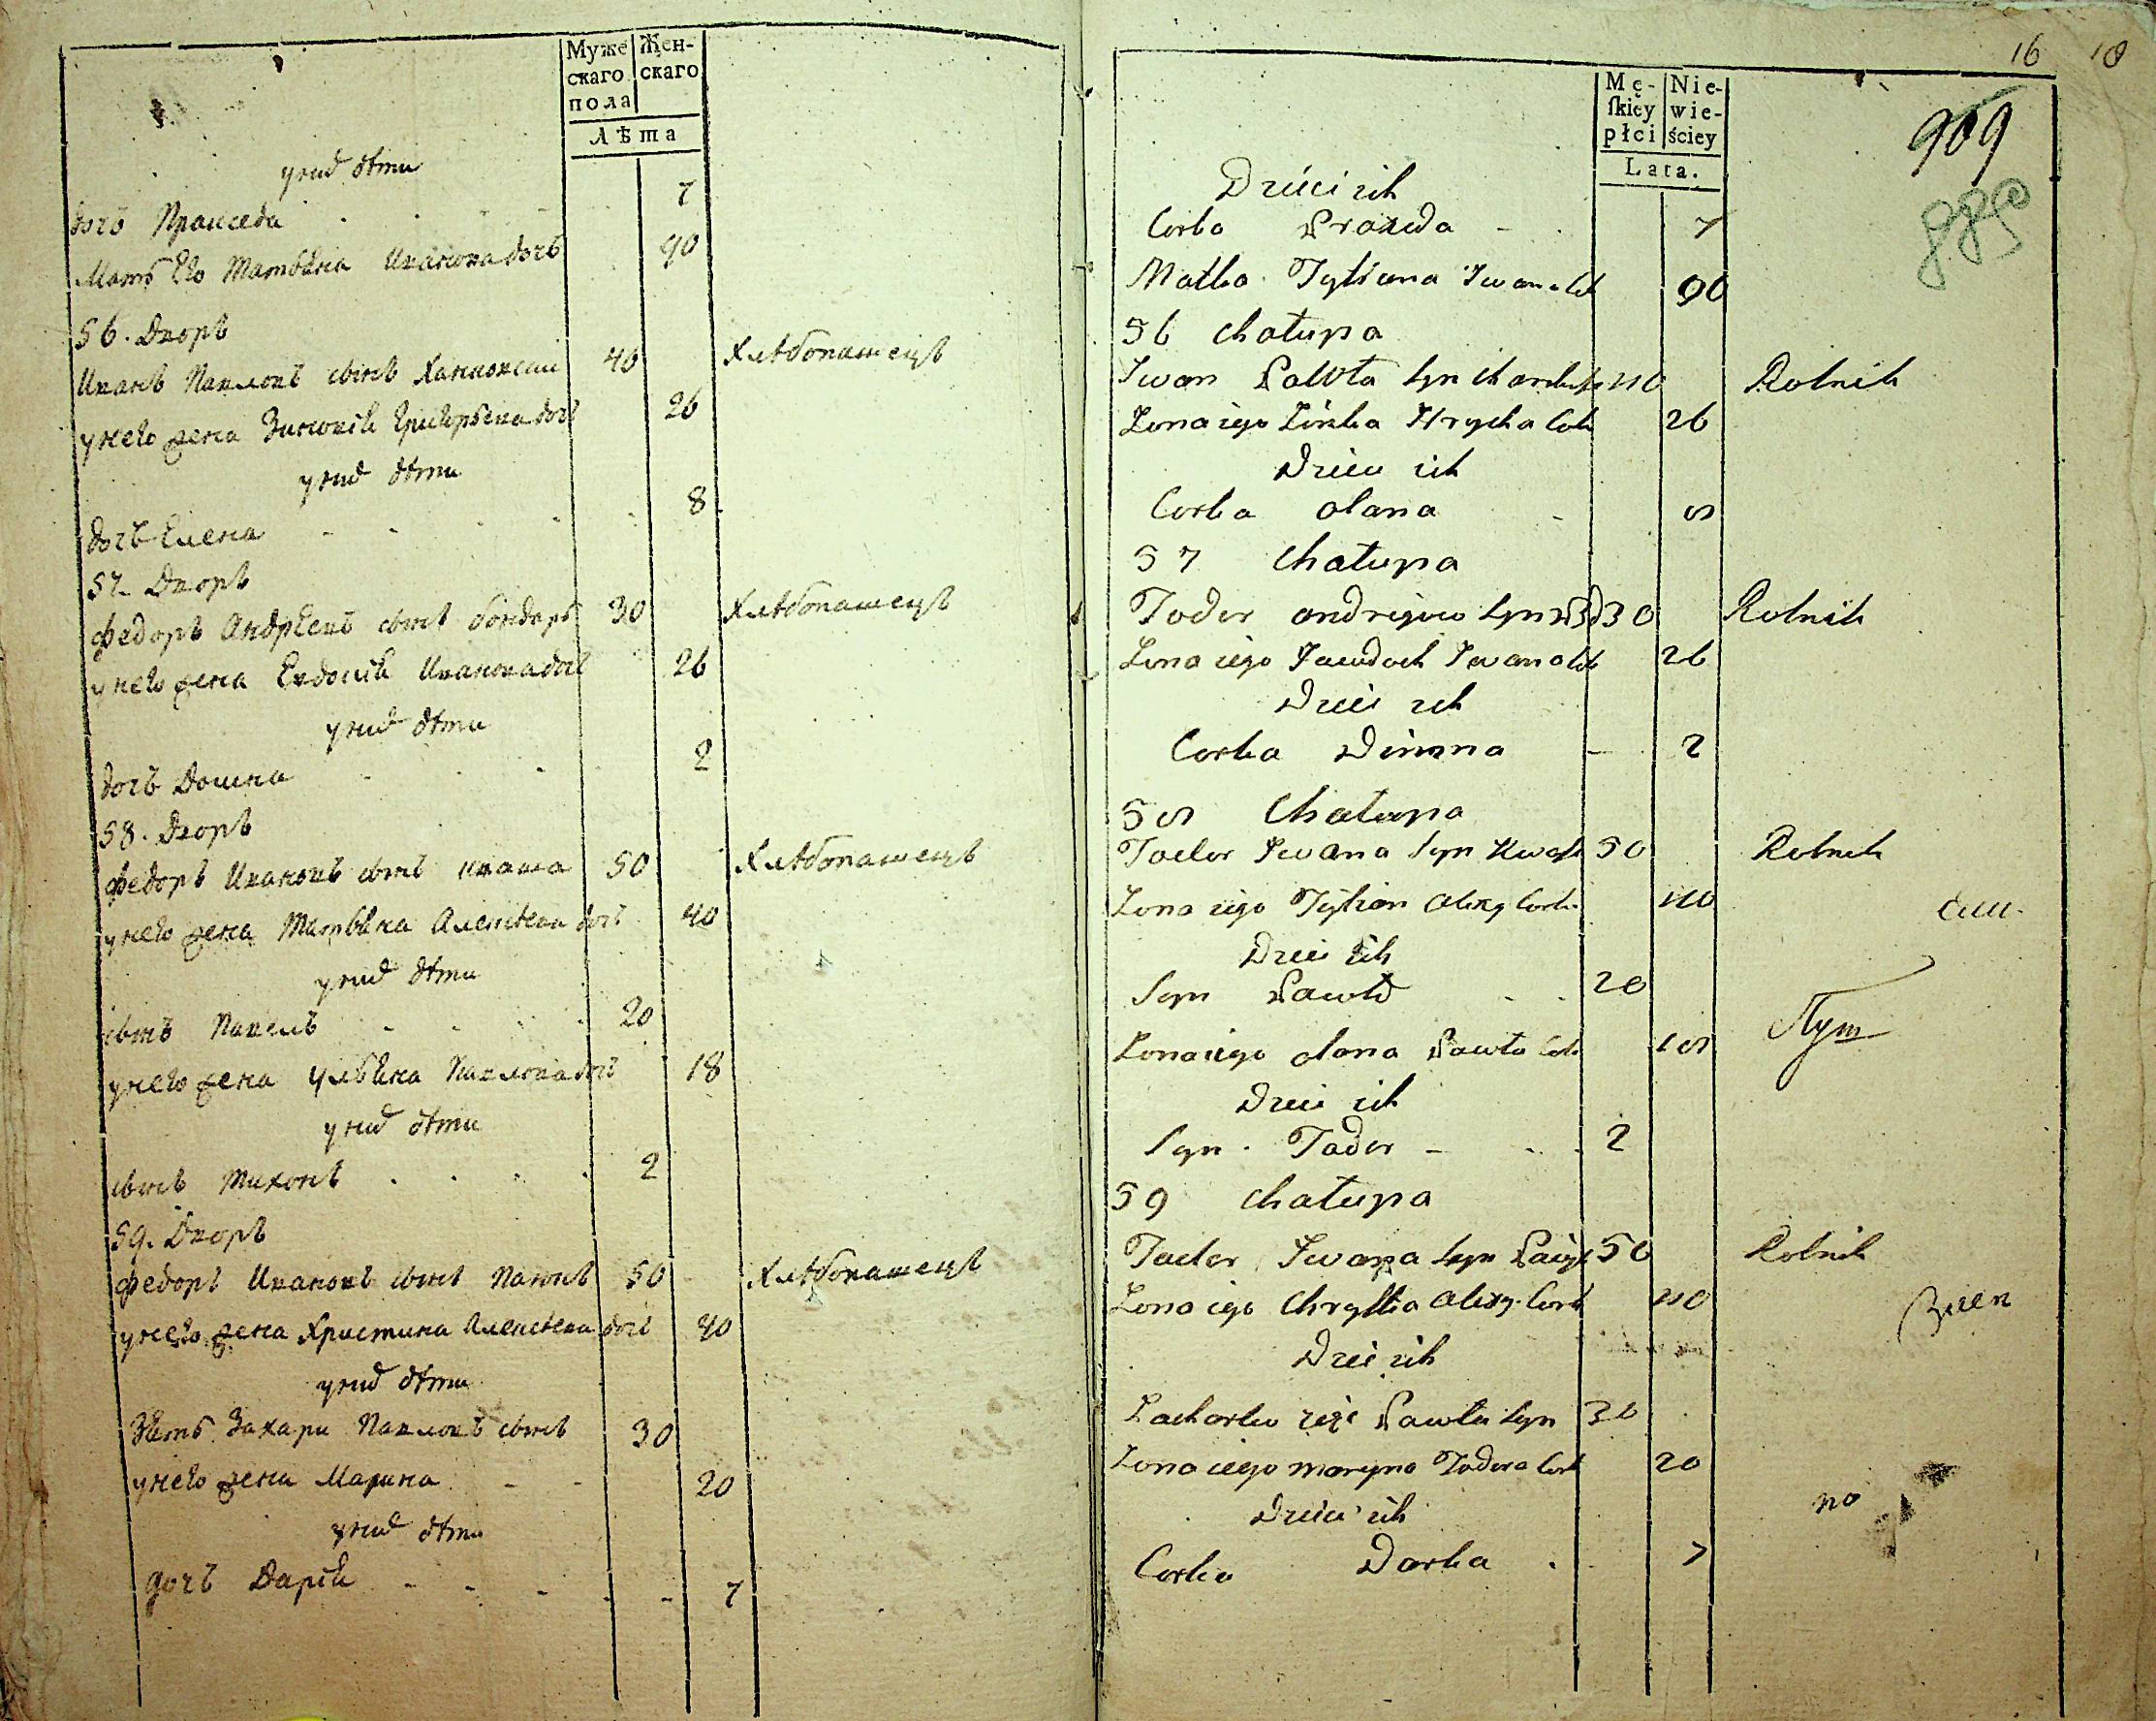 Муже
скаго
пола
Жен-
скаго
Лѣта
у нихъ дѣти
дочь Праседа 7
Мать Его Татьяна Иванова дочь 90
56. Дворъ
Иванъ Павловъ сынъ 40 Хлѣбопашецъ
у него жена Зиновія Григорьева дочь 26
у нихъ дѣти
дочь Елена 8
57. Дворъ
Федоръ Андрѣевъ сынъ бондарь 30 Хлѣбопашецъ
у него жена Евдокія Иванова дочь 26
у нихъ дѣти
дочь Домна 2
58. Дворъ
Федоръ Ивановъ сынъ кваша 50 Хлѣбопашецъ
у него жена Татьяна Алексѣева дочь 40
у нихъ дѣти
сынъ Павелъ 20
у него жена Ульяна Павлова дочь 18
у нихъ дѣти
сынъ Тихонъ 2
59. Дворъ
Федоръ Ивановъ сынъ 50 Хлѣбопашецъ
у него жена Христина Алексѣева дочь 40
у нихъ дѣти
Зять Захари Павловъ сынъ 30
у него жена Марина 20
у нихъ дѣти
дочь Дарія 7
16 18
Mę-
ſkiey
płci
Nie-
wie-
ściey
Lata.
909
Dzieci ich
Corka Praxeda 7
Matka Tytiana Iwana Cork 90
56 Chałupa
Iwan Pawła Syn 40 Rolnik
Zona iego Zinka Hrycka Cork 26
Dzieci ich
Corka Olana 8
57 Chałupa
Todor Andrejow Syn 30 Rolnik
Zona iego Jawdoch Iwana Cork 26
Dzieci ich
Corka Dimna 2
58 Chałupa
Todor Iwana Syn Kwasz 50 Rolnik
Zona iego Tytian Olexy Cork 40
Dzieci ich
Syn Pawło 20
Zona iego Olana Pawła Cork 18
Dzieci ich
Syn Todor 2
59 Chałupa
Todor Iwana Syn 50 Rolnik
Zona iego Chrystia Olexy Cork 40
Dzieci ich
Zacharko Pawła Syn 30
Zona iego Maryna Todora Cork 20
no
Dzieci ich
Corka Darka 7